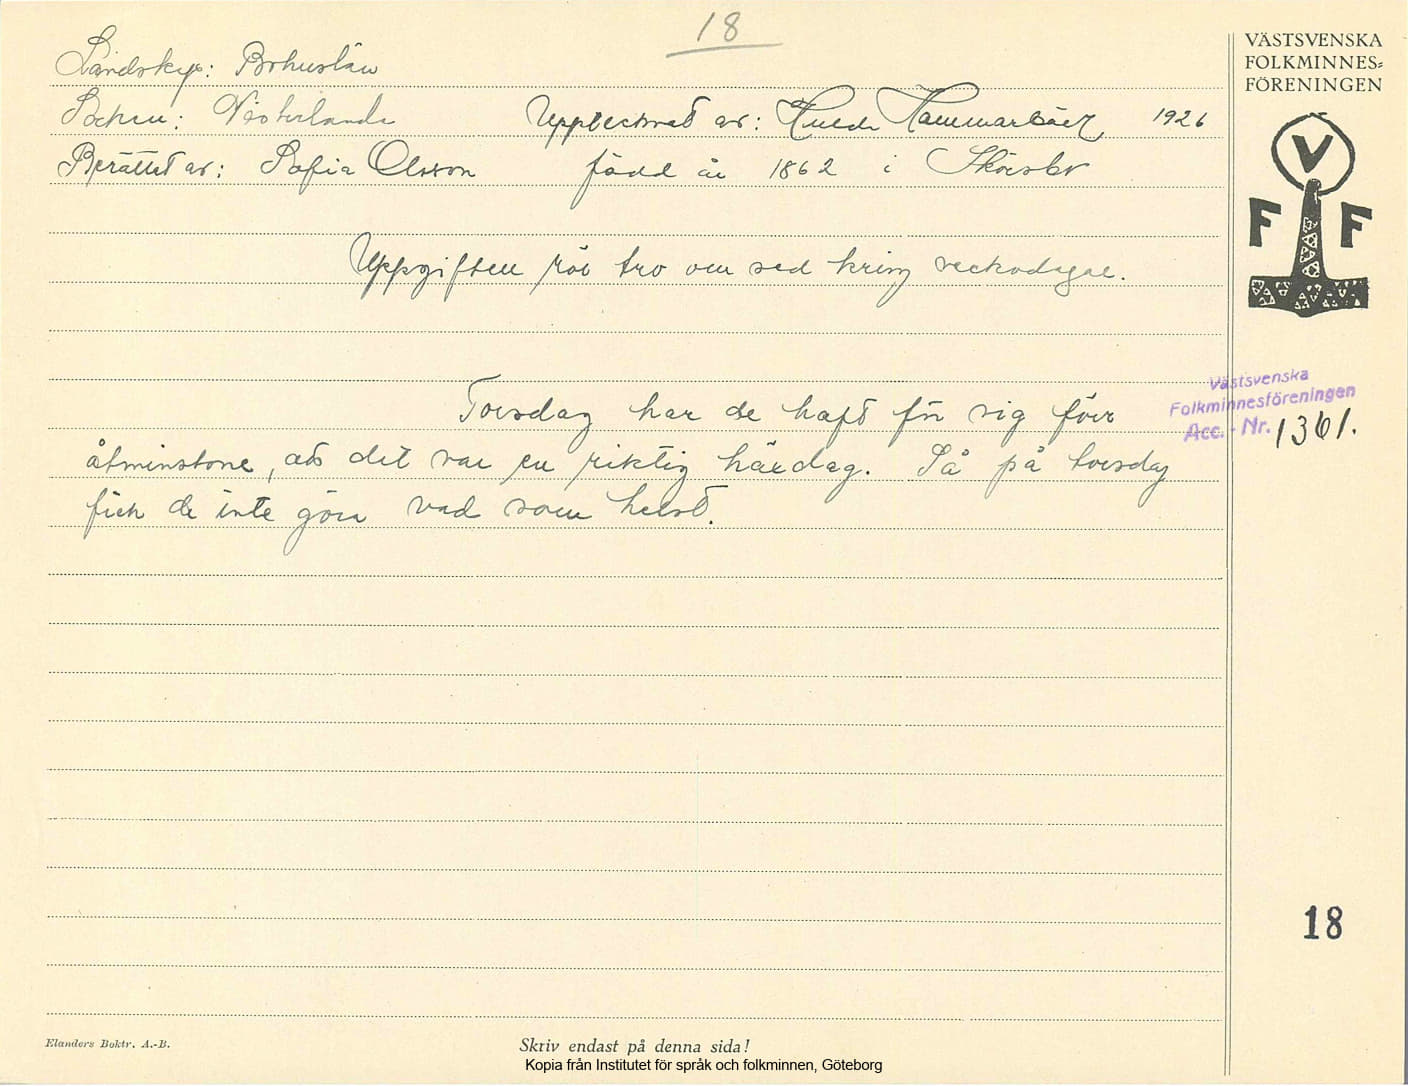 18
Landskap: Bohuslän
Socken: Västerlanda Upptecknat av: Hulda Hammarbäck 1926
Berättat av: Sofia Olsson född år 1862 i Skörsbo
Uppgiften rör tro och sed kring veckodagar.
Torsdag har de haft för sig förr
åtminstone, att det var en riktig härdag. Så på torsdag
fick de inte göra vad som helst.
VÄSTSVENSKA
FOLKMINNES=
FÖRENINGEN
V
F F
Västsvenska
Folkminnesföreningen
Acc. - Nr. 1361.
18
Elanders Boktr. A.-B.
Skriv endast på denna sida!
Kopia från Institutet för språk och folkminnen, Göteborg